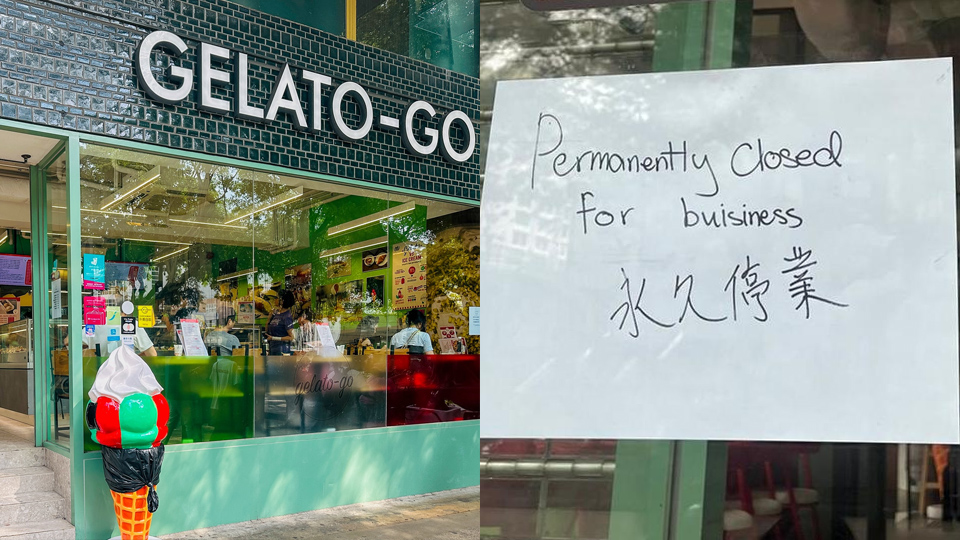 GELATO-GO
gelato-go
Permanently Closed
for buisiness
永久停業